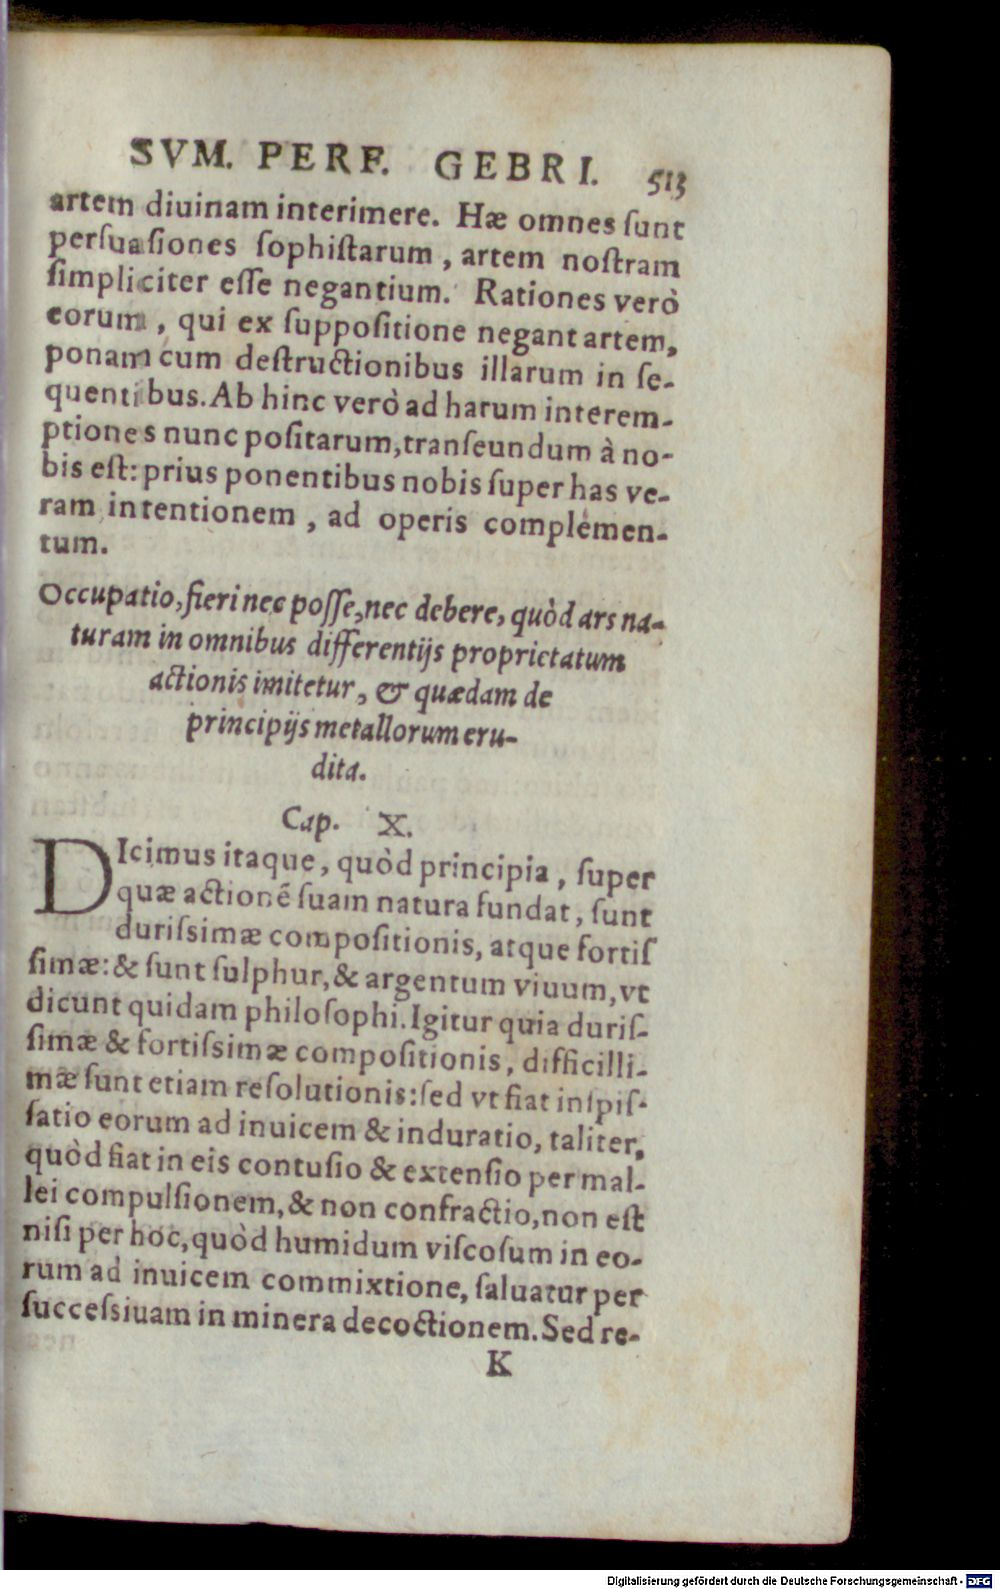 SVM. PERF. GEBRI. 513
artem diuinam interimere. Hæ omnes ſunt
perſuaſiones ſophiſtarum, artem noſtram
ſimpliciter eſſe negantium. Rationes verò
eorum, qui ex ſuppoſitione negant artem,
ponam cum deſtructionibus illarum in ſe-
quentibus. Ab hinc verò ad harum interem-
ptiones nunc poſitarum, tranſeundum à no-
bis eſt: prius ponentibus nobis ſuper has ve-
ram intentionem, ad operis complemen-
tum.
Occupatio, fieri nec poſſe, nec debere, quòd ars na-
turam in omnibus differentijs proprietatum
actionis imitetur, & quædam de
principijs metallorum eru-
dita.
Cap. X.
DIcimus itaque, quòd principia, ſuper
quæ actionẽ ſuam natura fundat, ſunt
duriſsimæ compoſitionis, atque fortiſ
ſimæ: & ſunt ſulphur, & argentum viuum, vt
dicunt quidam philoſophi. Igitur quia duriſ-
ſimæ & fortiſsimæ compoſitionis, difficilli-
mæ ſunt etiam reſolutionis: ſed vt fiat inſpiſ-
ſatio eorum ad inuicem & induratio, taliter,
quòd fiat in eis contuſio & extenſio per mal-
lei compulſionem, & non confractio, non eſt
niſi per hoc, quòd humidum viſcoſum in eo-
rum ad inuicem commixtione, ſaluatur per
ſucceſsiuam in minera decoctionem. Sed re-
K
Digitalisierung gefördert durch die Deutsche Forschungsgemeinschaft - DFG